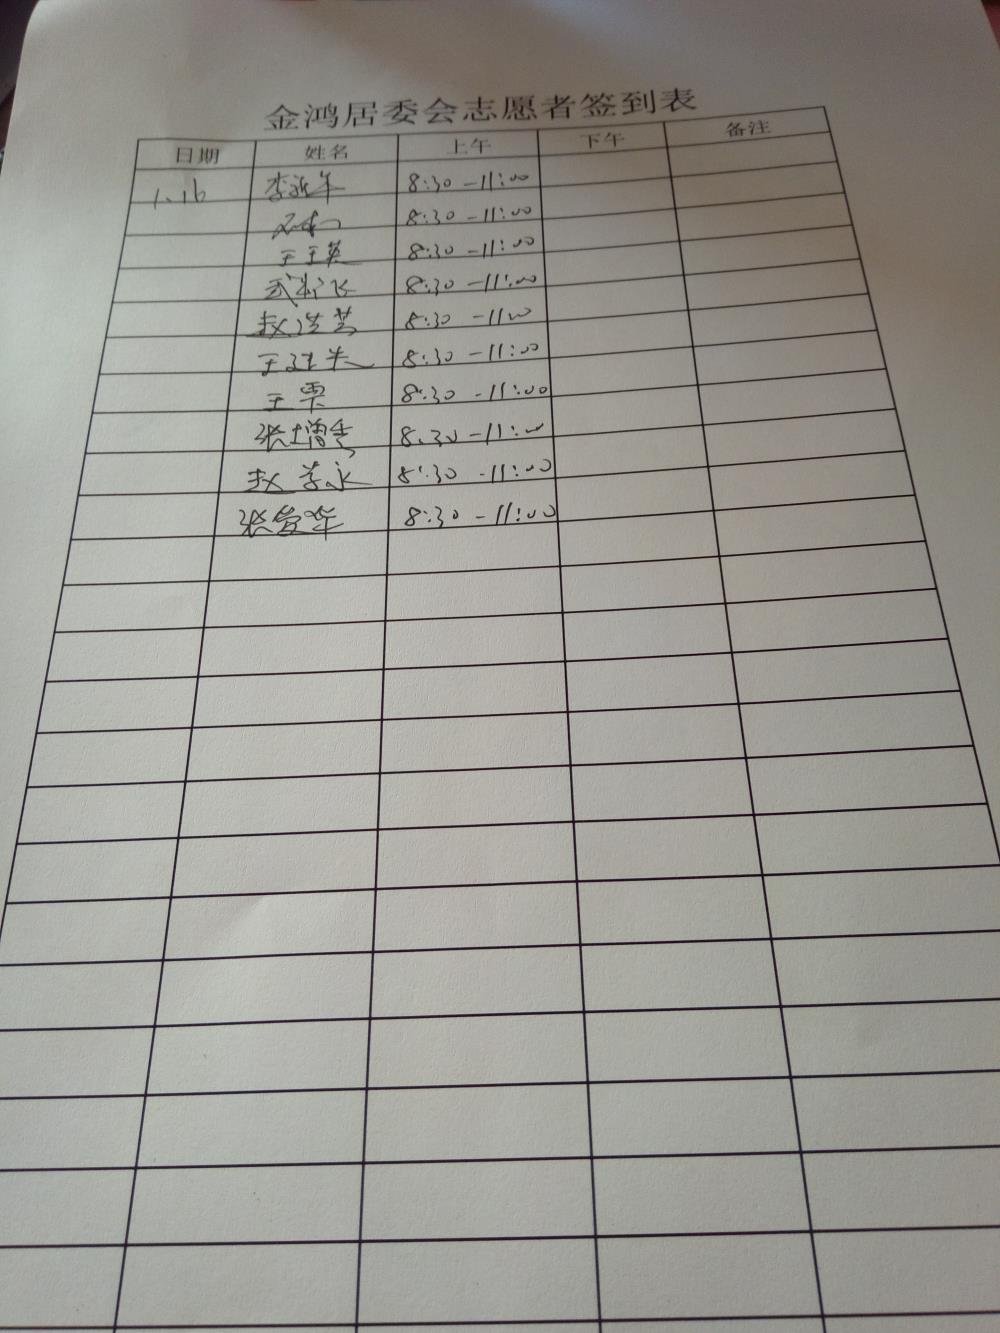 金鸿居委会志愿者签到表
日期 姓名 上午 下午 备注
1.16 李延年 8:30-11:00
8:30-11:00
王玉英 8:30-11:00
武 飞 8:30-11:00
赵洪芳 8:30-1100
王建 8:30-11:00
王票 8:30-11:00
张增秀 8:30-11:00
赵孝永 8:30-11:00
张爱华 8:30-11:00